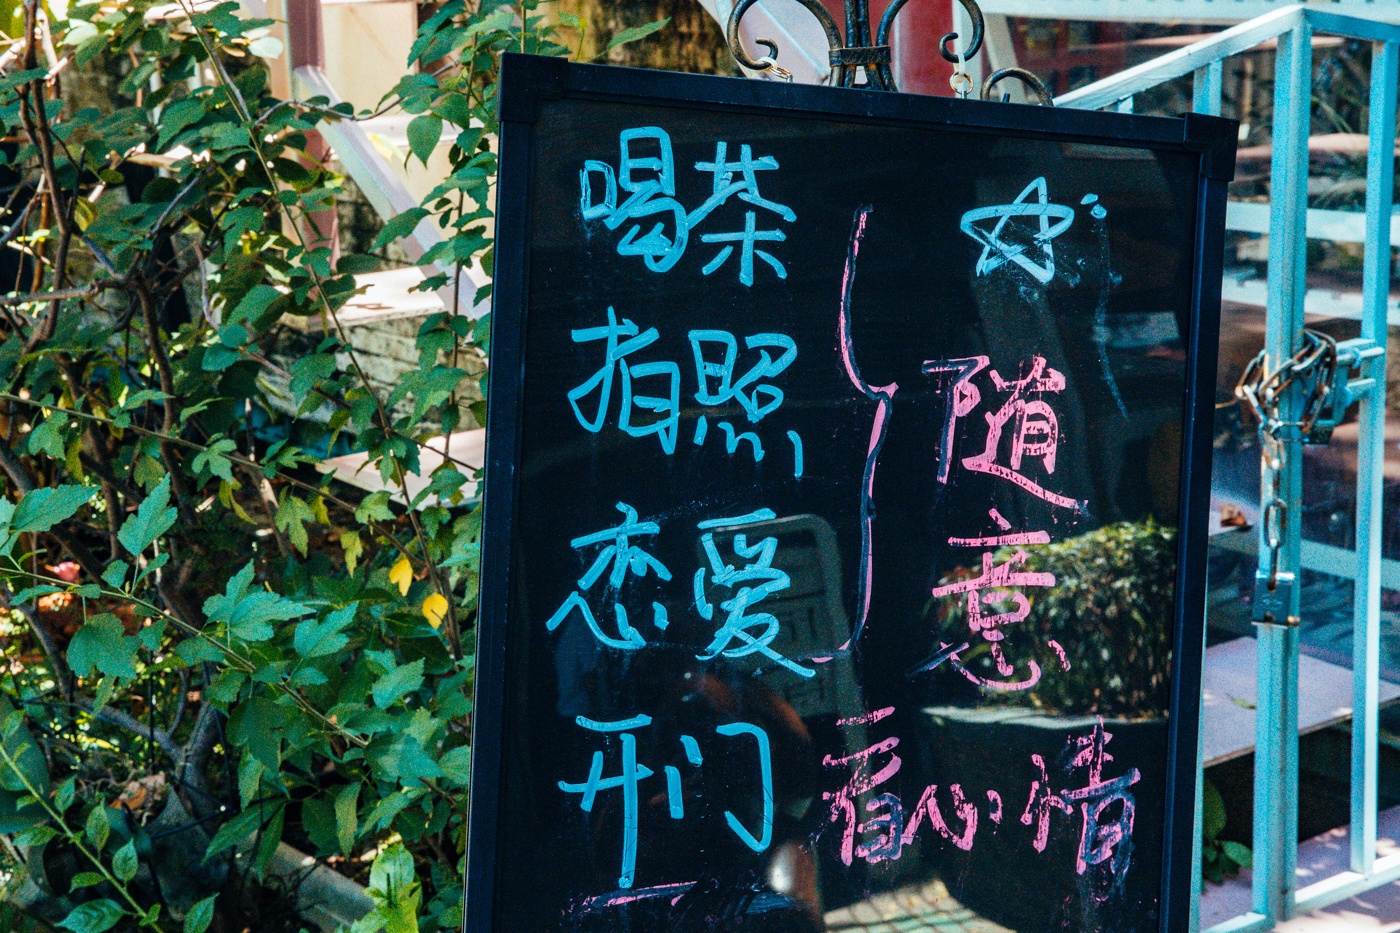 喝茶
拍照
恋爱
随意
开门
看心情